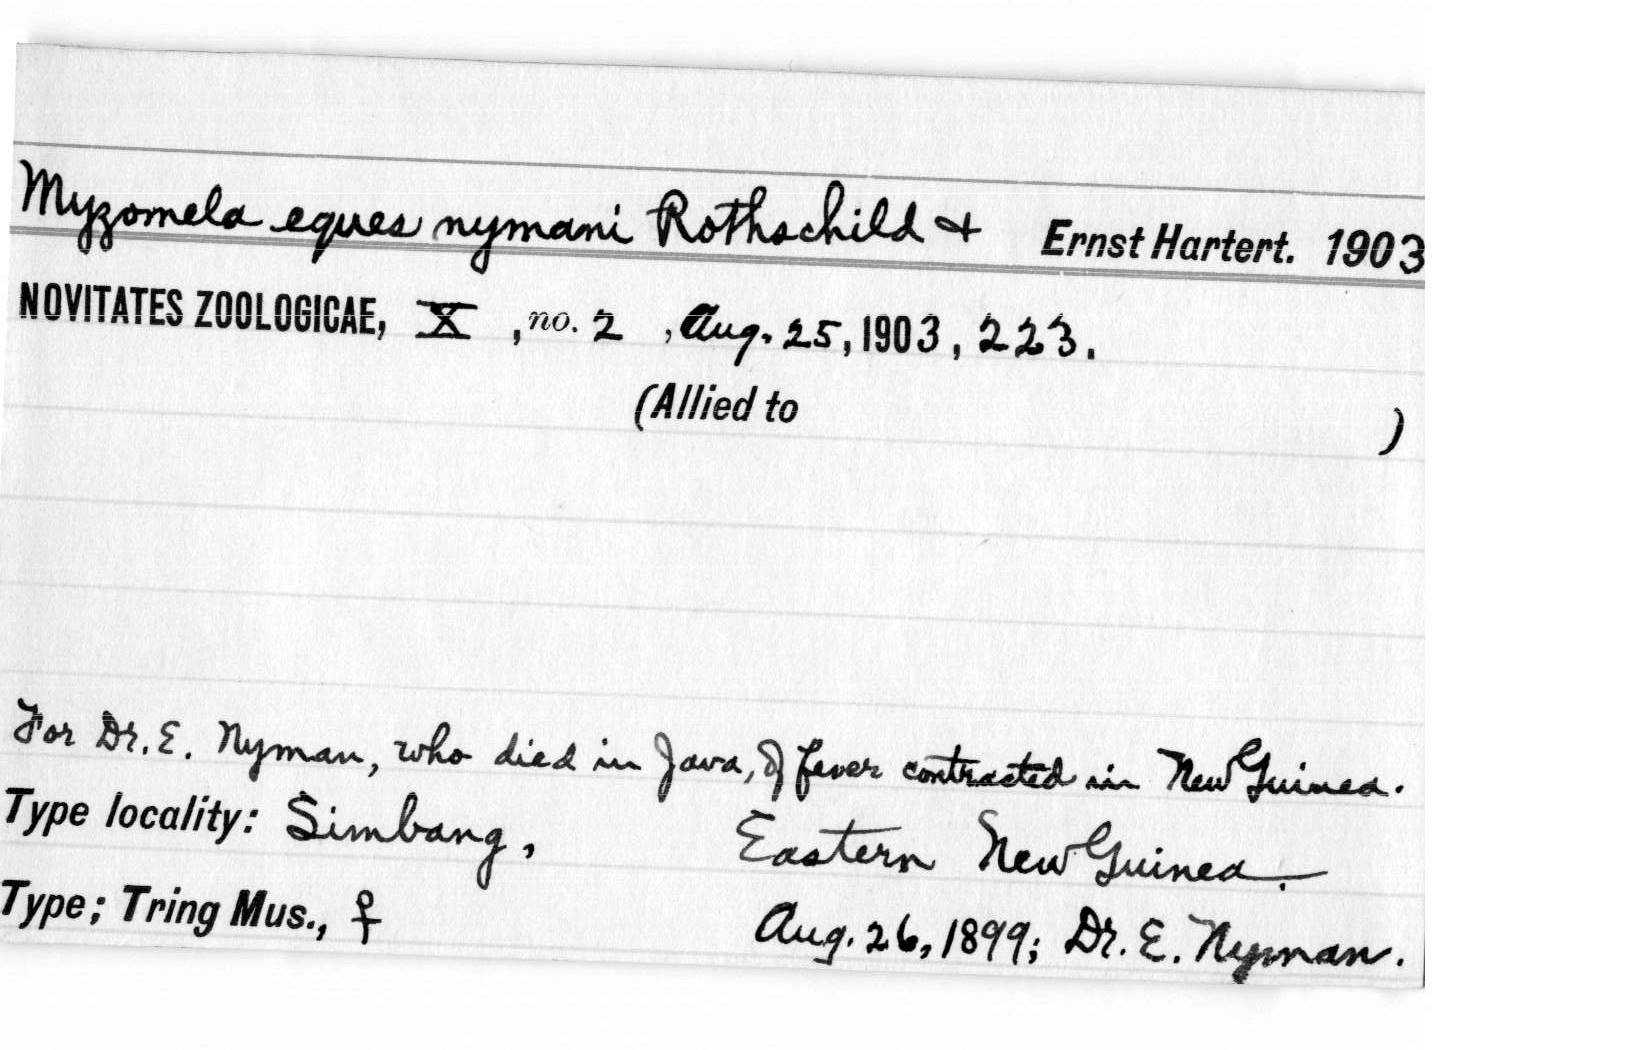 Myzomela eques nymani Rothschild & Ernst Hartert. 1903
NOVITATES ZOOLOGICAE, X, no. 2, Aug. 25, 1903, 223.
(Allied to )
For Dr. E. Nyman, who died in Java, of fever contracted in New Guinea.
Type locality: Simbang, Eastern New Guinea.
Type; Tring Mus., ♀ Aug. 26, 1899; Dr. E. Nyman.